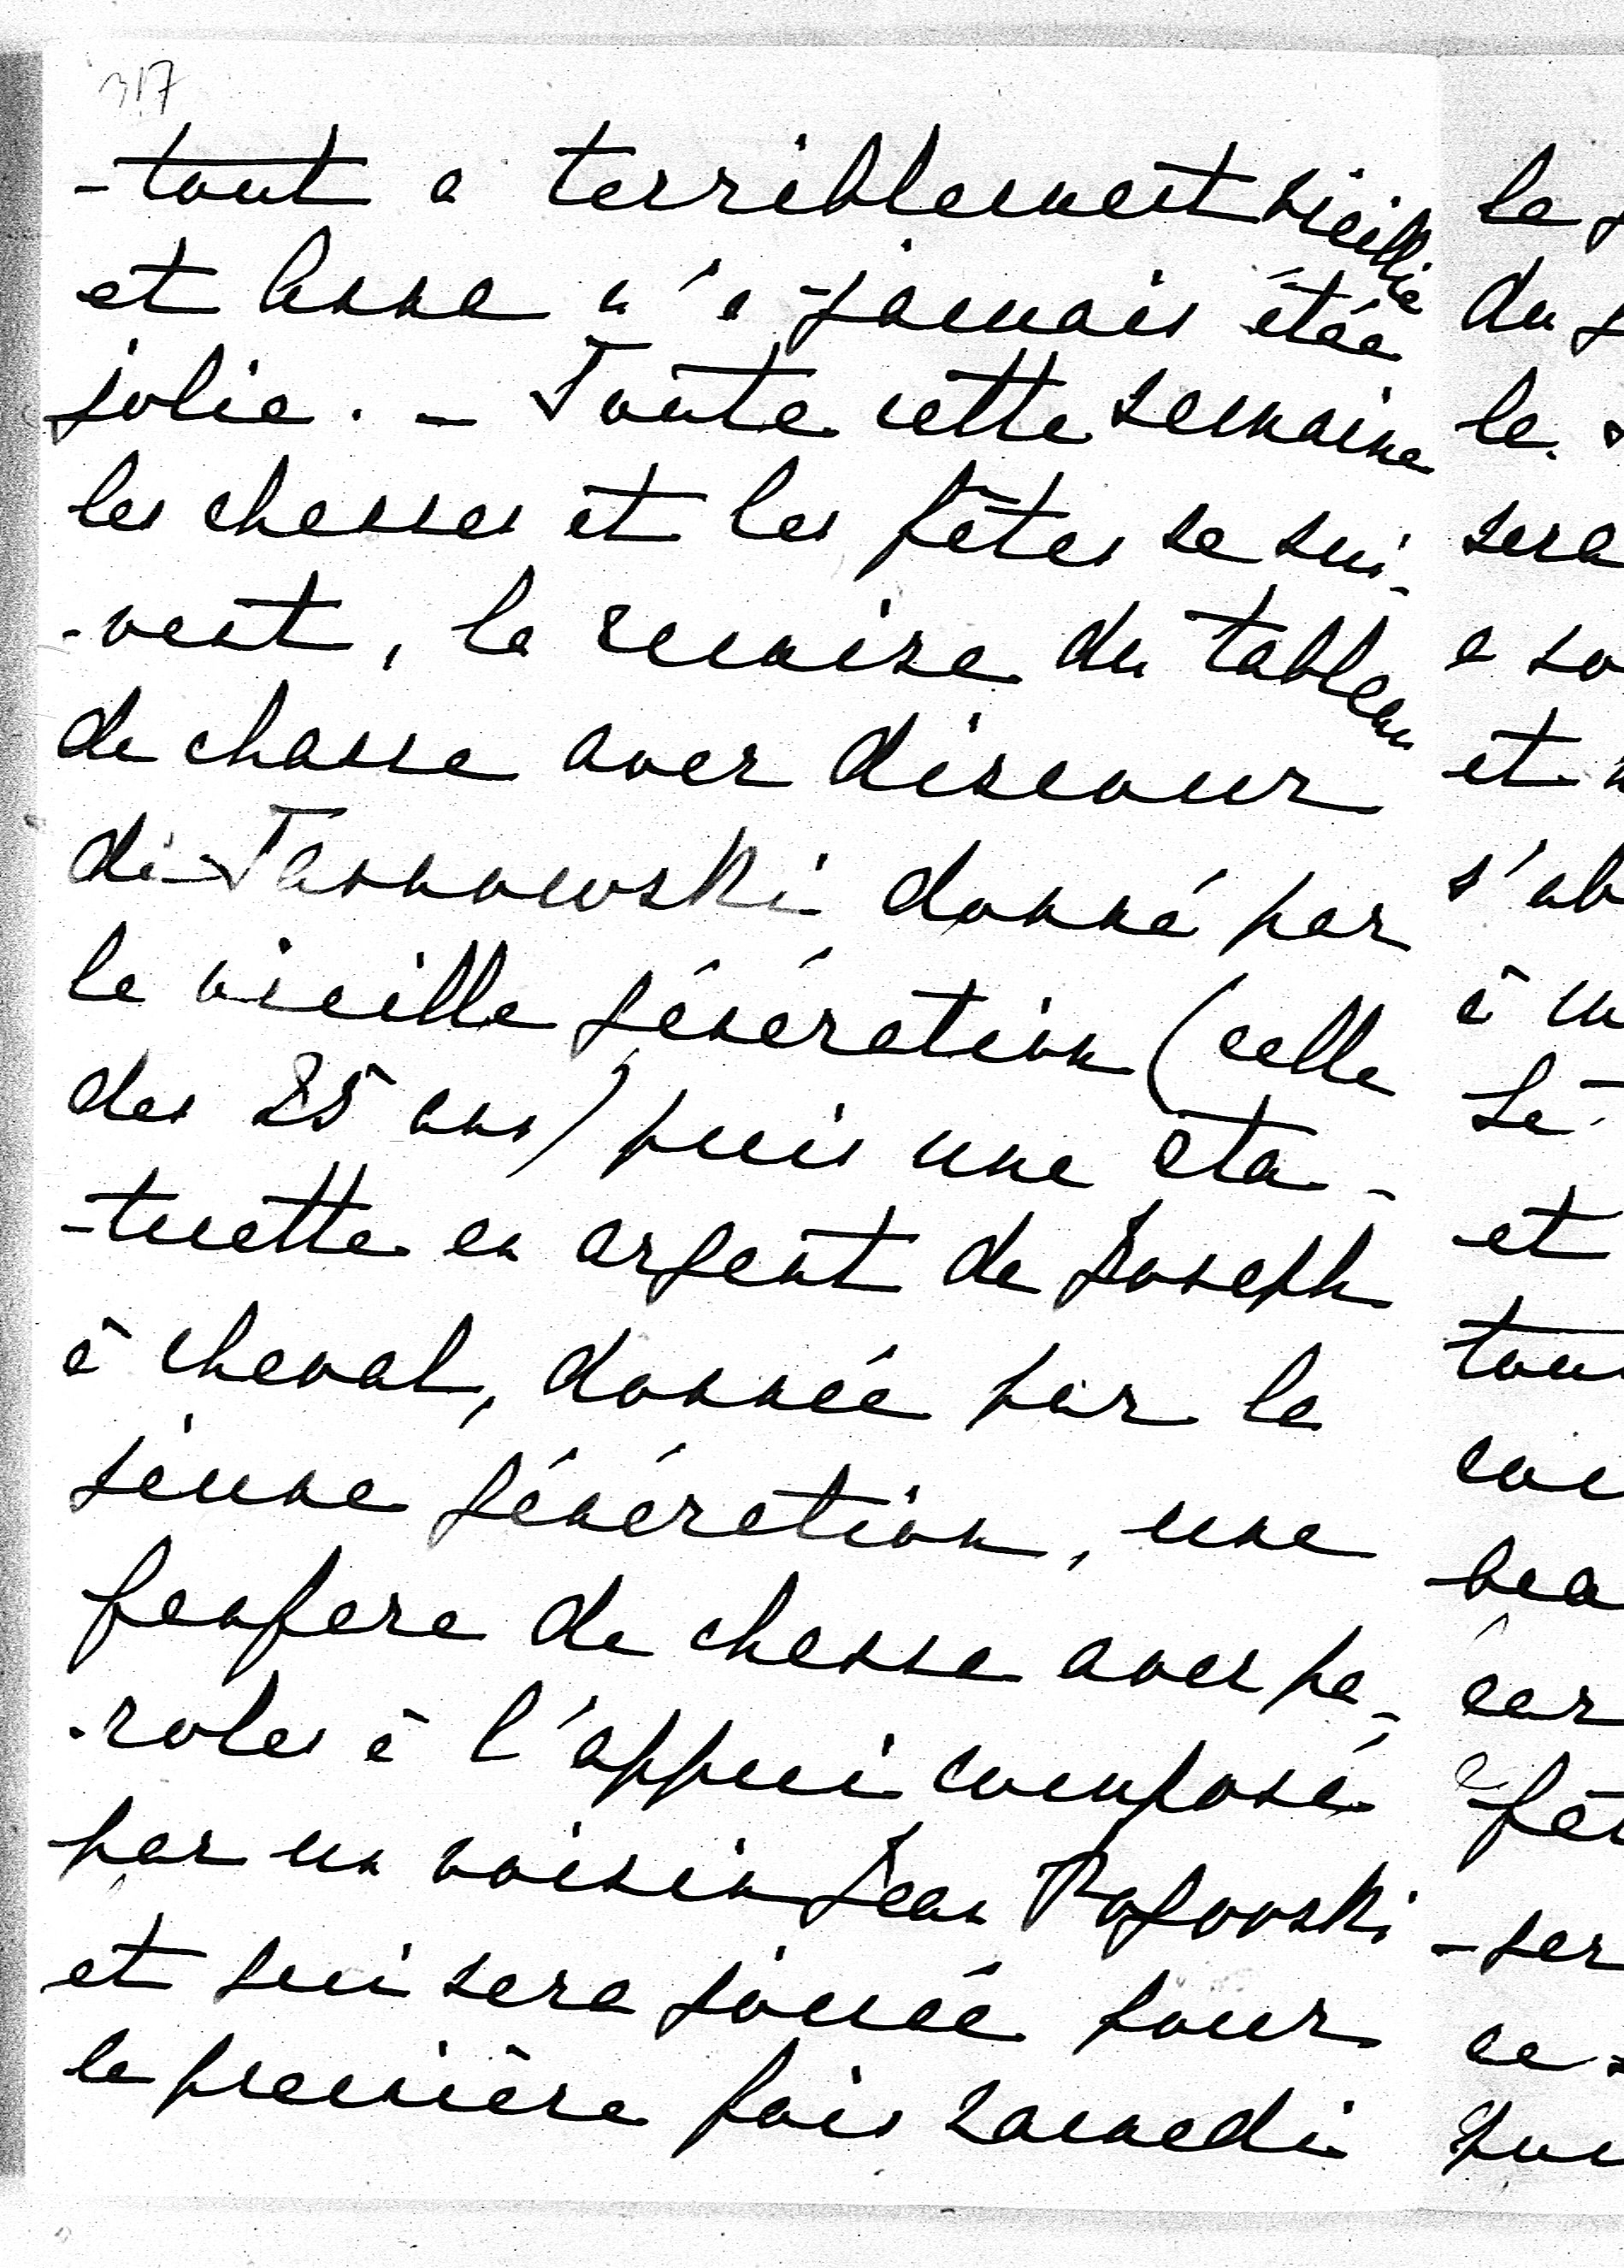 317
-tout a terriblement vieillie
et Anna n'a jamais étée
jolie. - Toute cette semaine
les chasses et les fêtes se sui-
-vent, la remise du tableau
de chasse avec discour
di Tarnowski donné par
la vieille génération (celle
des 25 ans) puis une sta-
-tuette en argent de Joseph
à cheval, donnée par la
jeune génération, une
fanfare de chasse avec pa-
-roles à l'appui composé
par un voisin Jean Rogowski
et qui sera jouée pour
la première fois samedi
le
du
le
sera
a
et
s'ab
à
Le
et
tou
car
fê
-ser
ce